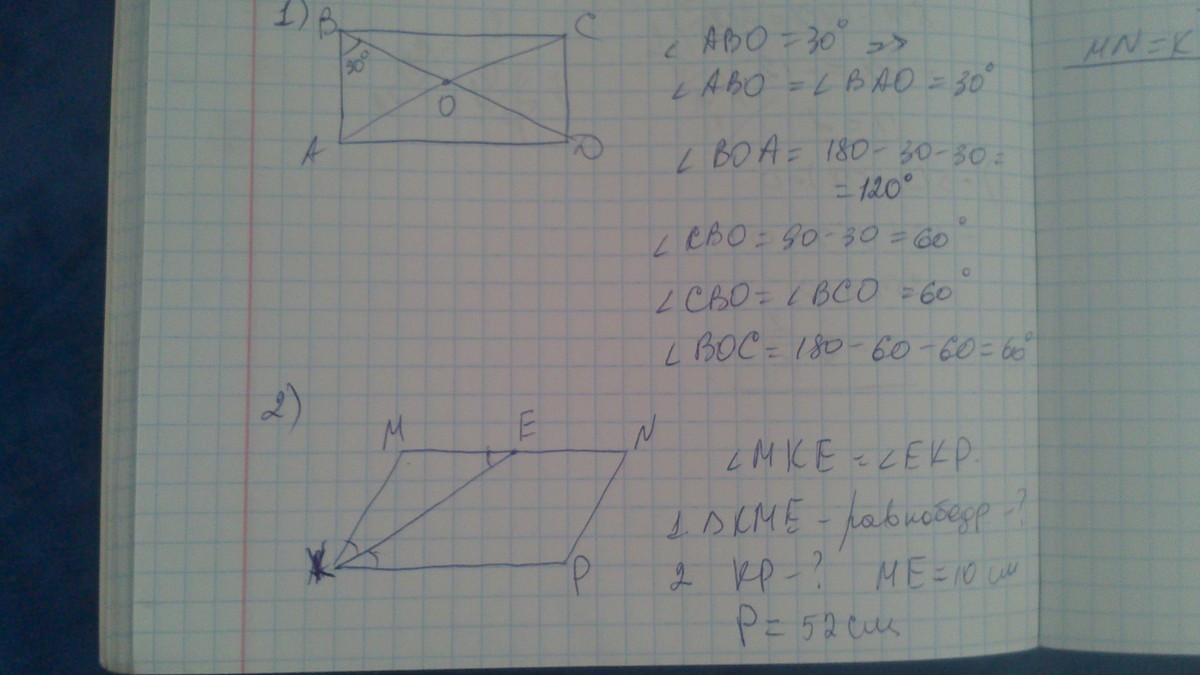 1)
B
C
30°
O
A
D
∠ABO = 30° =>
∠ABO = ∠BAO = 30°
∠BOA = 180 - 30 - 30 =
= 120°
∠CBO = 90 - 30 = 60°
∠CBO = ∠BCO = 60°
∠BOC = 180 - 60 - 60 = 60°
MN = K
2)
M
E
N
K
P
∠MKE = ∠EKP.
1 ΔKME - равнобедр - ?
2 KP - ? ME = 10 см
P = 52 см